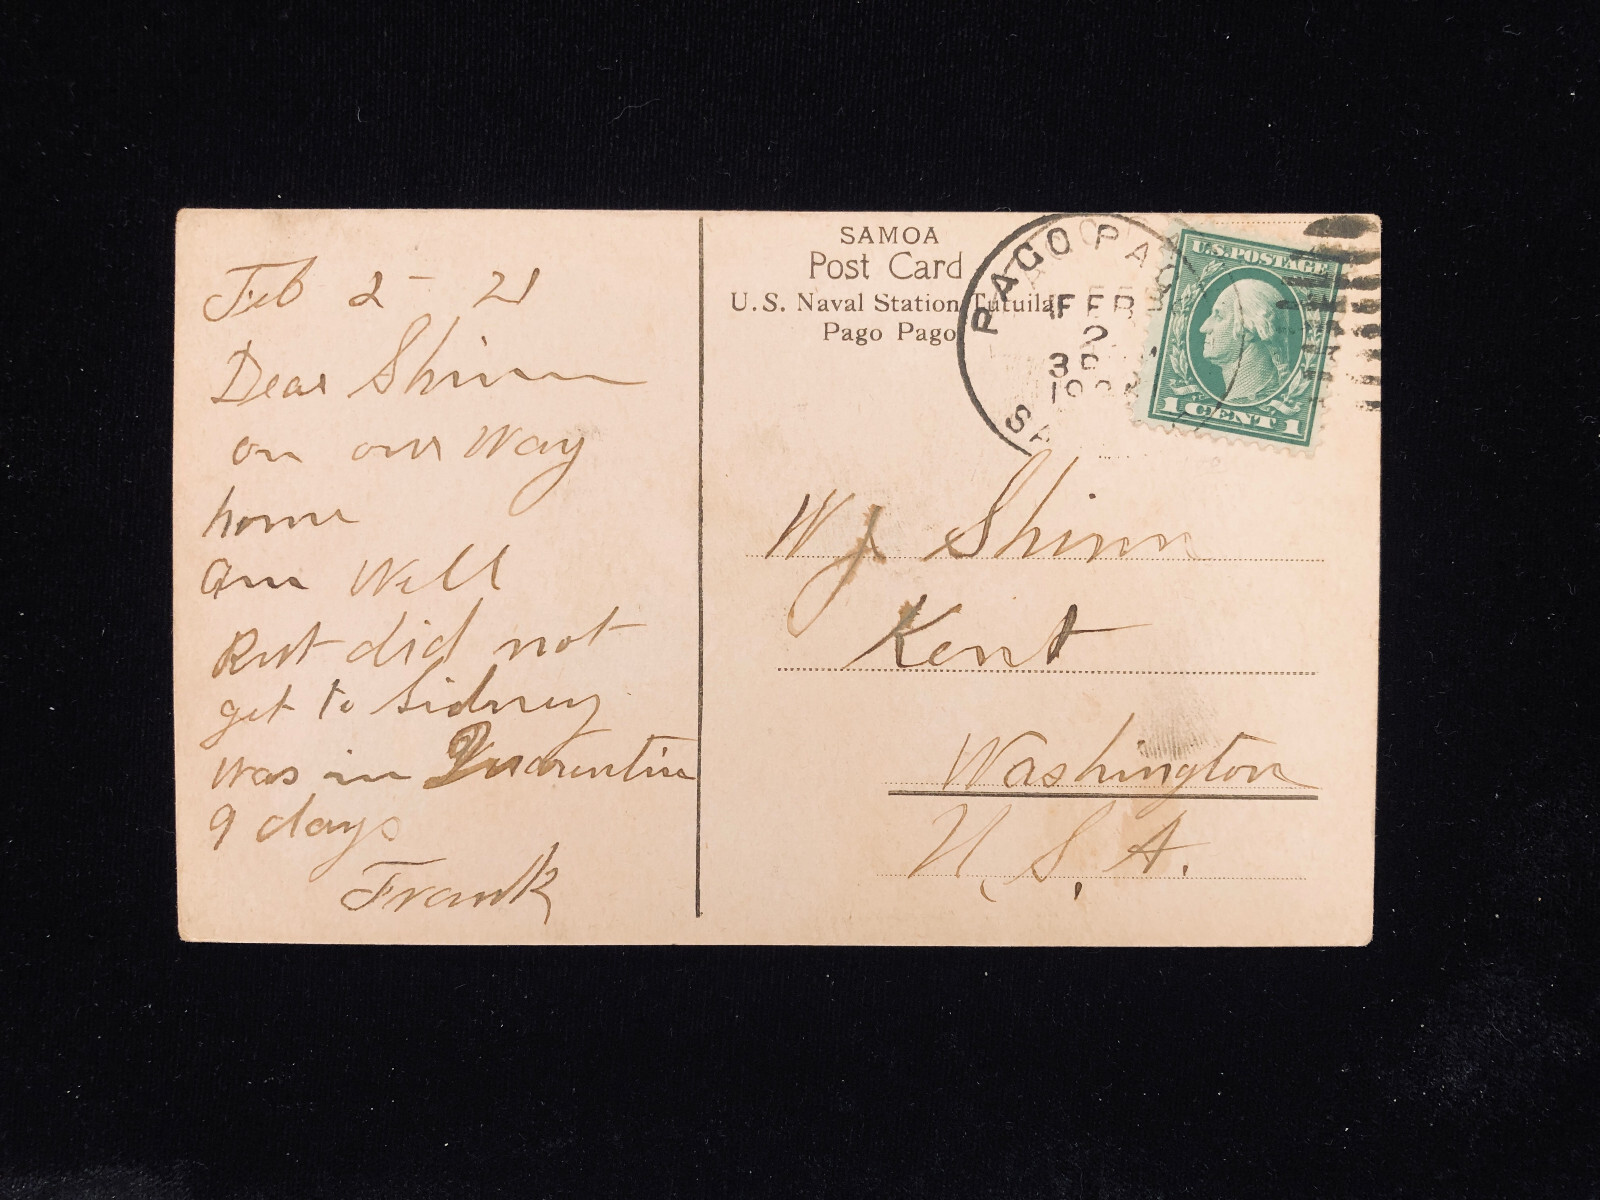 Feb 2 - 21
Dear Shinn
on our Way
home
am Well
But did not
get to Sidney
was in Quarentine
9 days
Frank
SAMOA
Post Card
U.S. Naval Station Tutuila
Pago Pago
PAGO PAGO
FEB
2
U.S. POSTAGE
1 CENT 1
W J Shinn
Kent
Washington
U. S. A.